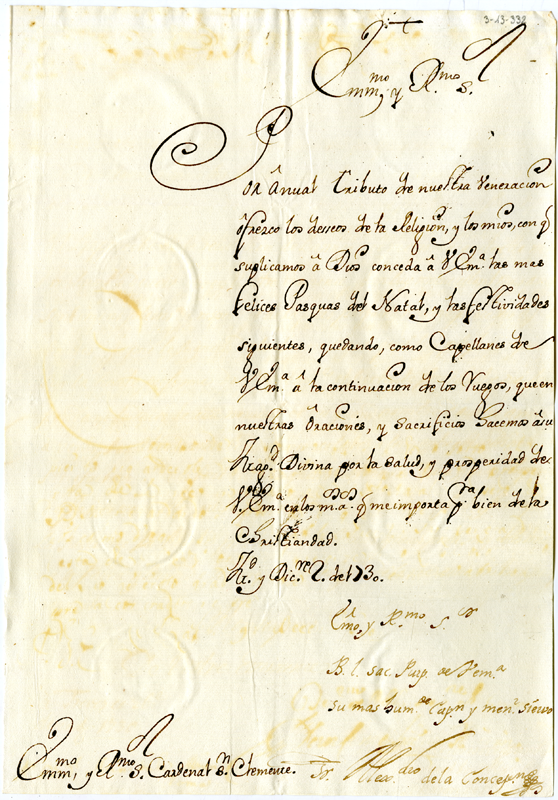 3-13-332
Emmo, y Rmo S.
Por Anual Tributo de nuestra Veneracion
ofrezco los desseos de la Religion, y los mios, con q
suplicamos â Dios conceda â VEma. las mas
felices Pasquas del Natal, y las festividades
siguientes, quedando, como Capellanes de
VEma. â la continuacion de los Ruegos, que en
nuestras Oraciones, y Sacrificios hacemos â su
Magd. Divina por la salud, y prosperidad de
VEma. en los ms. as. q me importa pra. bien de la
Christiandad.
y Dicre. 2. de 1730.
Emo, y Rmo Sr
B. l. sac. Purp. de Vema
su mas humde Capn y menr siervo
Emmo, y Rmo S. Cardenal Sn Clemente.
Fr. Alexdro de la Concepn